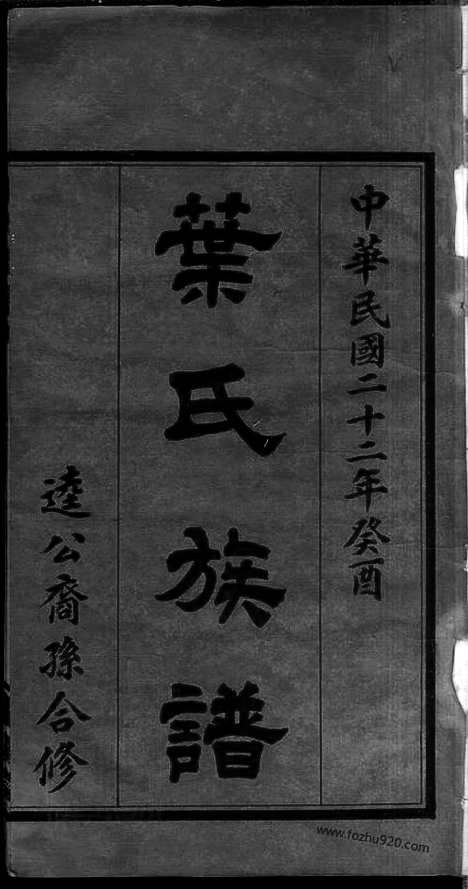 中華民國二十二年癸酉
葉氏族譜
逵公裔孫合修
www.fozhu920.com